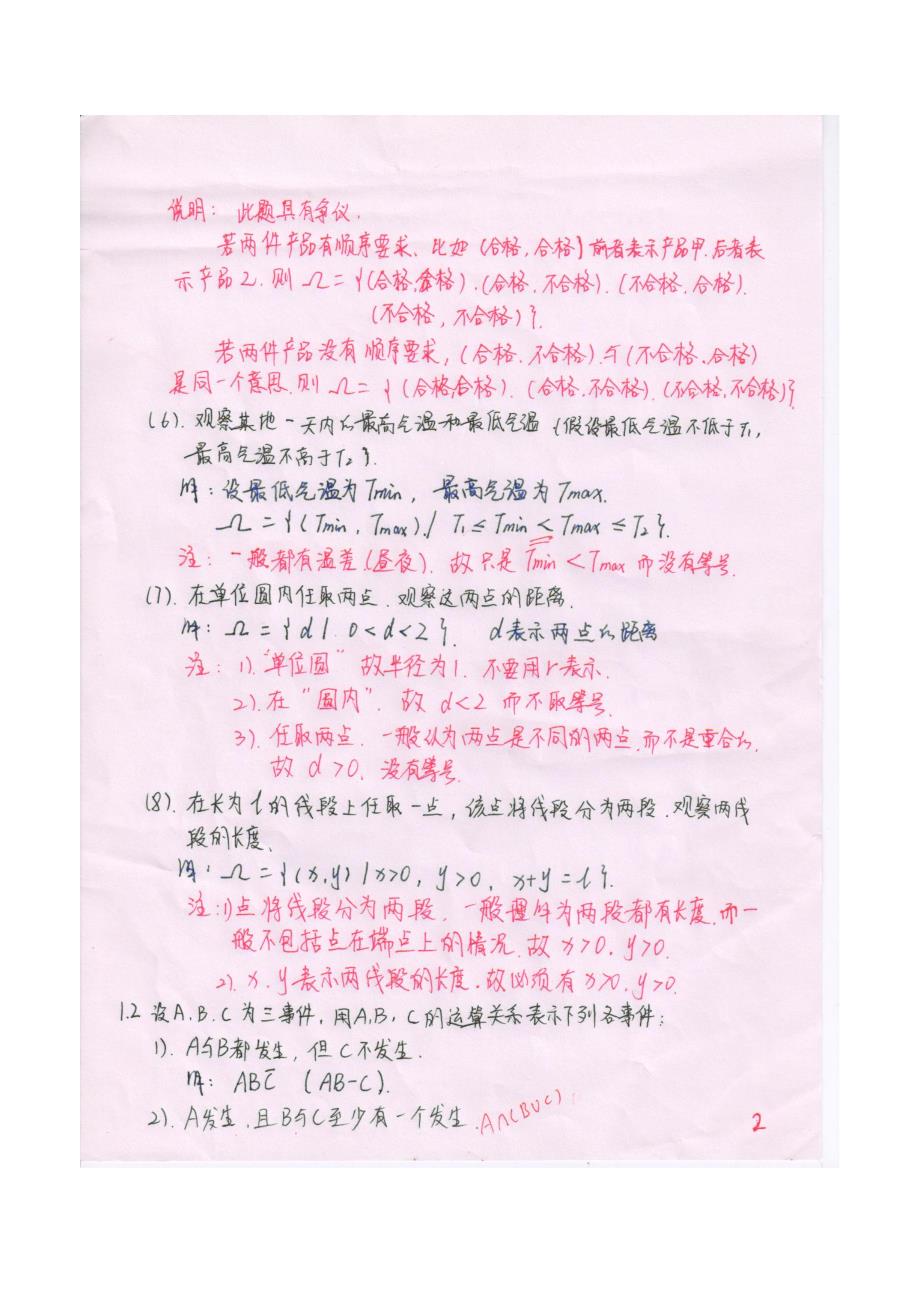 说明: 此题具有争议.
若两件产品有顺序要求、比如(合格,合格)前者表示产品甲.后者表
示产品乙.则 Ω={(合格,合格).(合格,不合格).(不合格.合格).
(不合格,不合格)}.
若两件产品没有顺序要求,(合格.不合格)与(不合格.合格)
是同一个意思.则 Ω={(合格,合格).(合格.不合格).(不合格,不合格)}
(6).观察某地一天内的最高气温和最低气温{假设最低气温不低于T₁,
最高气温不高于T₂}.
解:设最低气温为Tmin, 最高气温为Tmax.
Ω={(Tmin, Tmax)| T₁≤Tmin<Tmax≤T₂}.
注:一般都有温差(昼夜).故只是Tmin<Tmax而没有等号.
(7).在单位圆内任取两点.观察这两点的距离.
解: Ω={d|.0<d<2}. d表示两点的距离
注: 1)."单位圆"故半径为1.不要用r表示.
2).在"圆内".故d<2而不取等号.
3).任取两点.一般认为两点是不同的两点.而不是重合的.
故d>0、没有等号.
(8).在长为l的线段上任取一点,该点将线段分为两段.观察两线
段的长度、
解. Ω={(x,y)|x>0, y>0, x+y=l}.
注:1)点将线段分为两段.一般理解为两段都有长度.而一
般不包括点在端点上的情况.故x>0,y>0.
2).x.y表示两线段的长度.故必须有x>0,y>0.
1.2 设A.B.C为三事件,用A,B,C的运算关系表示下列各事件:
1).A与B都发生,但C不发生.
解: ABC̅ (AB-C).
2).A发生.且B与C至少有一个发生.A∩(B∪C)
2